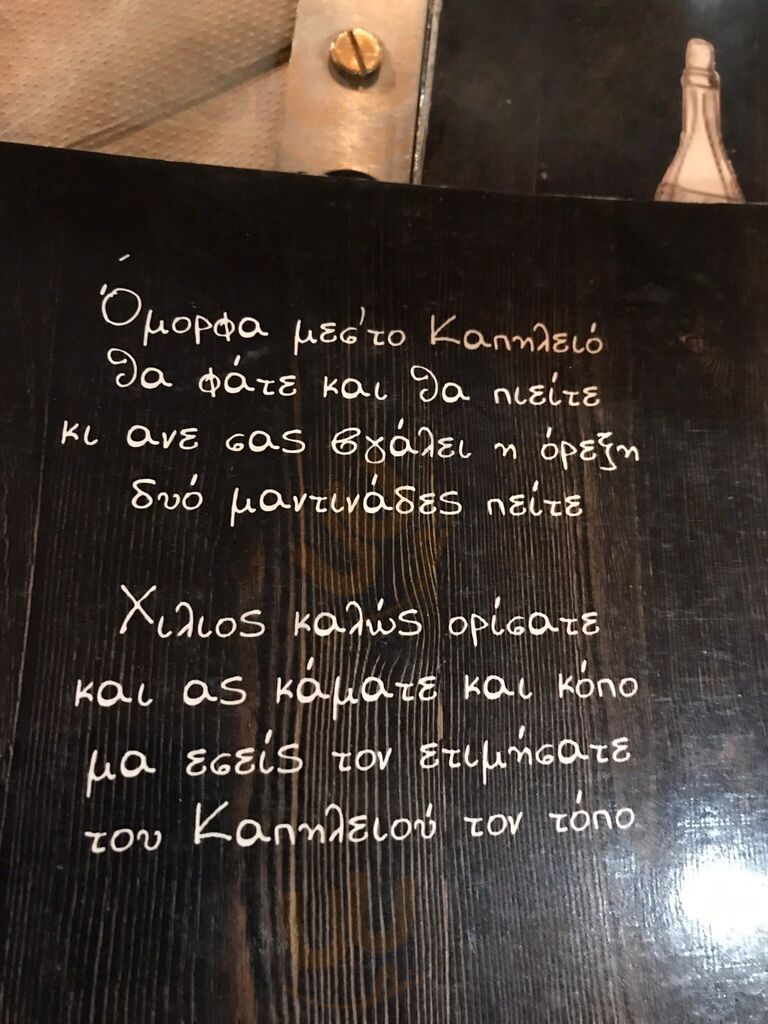 Όμορφα μεσ'το Καπηλειό
θα φάτε και θα πιείτε
κι ανε σας βγάλει η όρεξη
δυό μαντινάδες πείτε
Χιλιος καλώς ορίσατε
και ας κάματε και κόπο
μα εσείς τον ετιμήσατε
του Καπηλειού τον τόπο